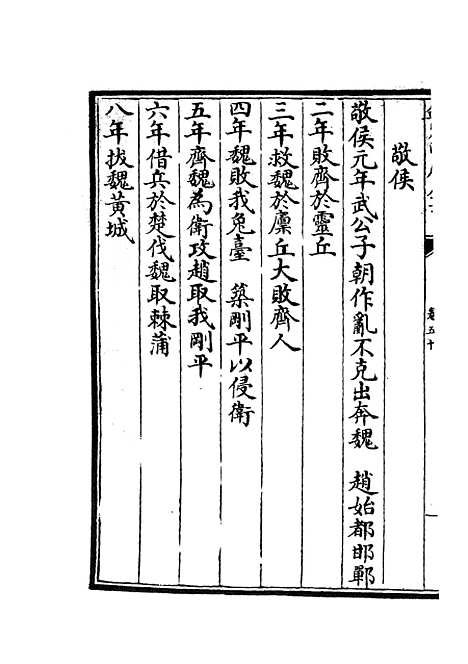 敬侯
敬侯元年武公子朝作亂不克出奔魏　趙始都邯鄲
二年敗齊於靈丘
三年救魏於廪丘大敗齊人
四年魏敗我兔臺　築剛平以侵衛
五年齊魏為衛攻趙取我剛平
六年借兵於楚伐魏取棘蒲
八年拔魏黃城
卷五十